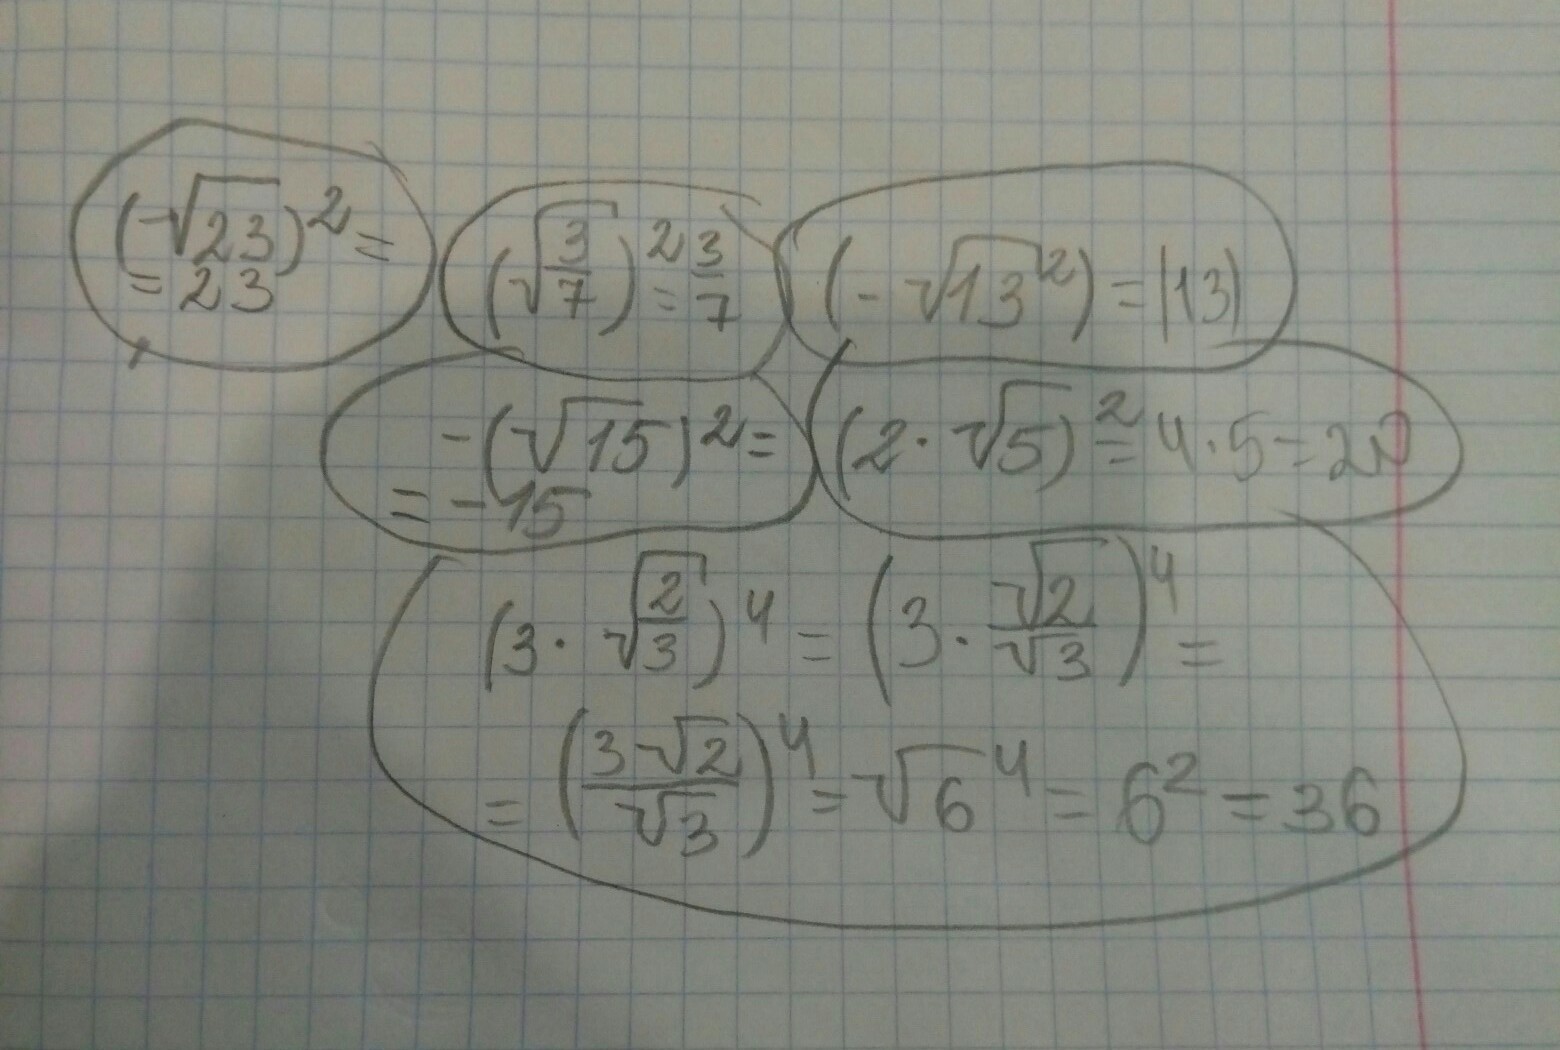 (-√23)² =
= 23
(√3/7)² = 3/7
(-√13²) = |13|
-(√15)² =
= -15
(2·√5)² = 4·5 = 20
(3·√2/3)⁴ = (3·√2/√3)⁴ =
= (3√2/√3)⁴ = √6⁴ = 6² = 36